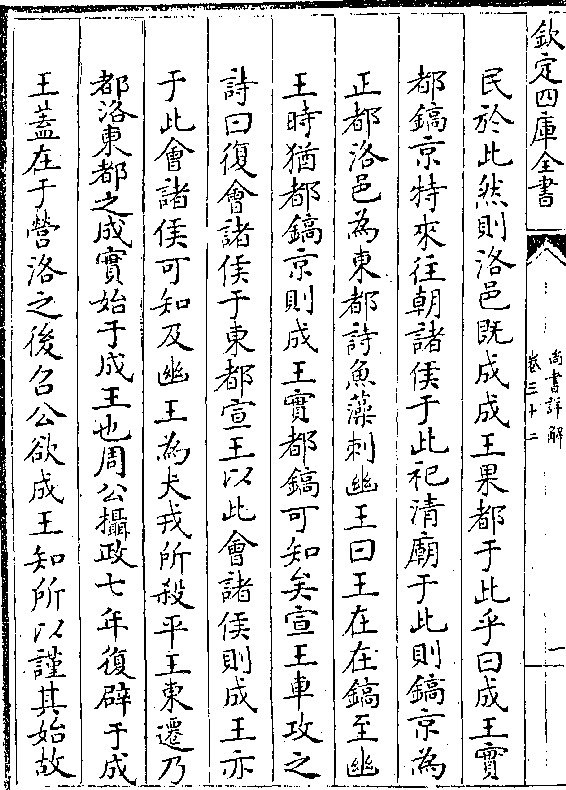 欽定四庫全書
尚書詳解
卷三十二
一
民於此然則洛邑既成成王果都于此乎曰成王實
都鎬京特來往朝諸侯于此祀清廟于此則鎬京為
正都洛邑為東都詩魚藻刺幽王曰王在在鎬至幽
王時猶都鎬京則成王實都鎬可知矣宣王車攻之
詩曰復會諸侯于東都宣王以此會諸侯則成王亦
于此會諸侯可知及幽王為犬戎所殺平王東遷乃
都洛東都之成實始于成王也周公攝政七年復辟于成
王蓋在于營洛之後召公欲成王知所以謹其始故